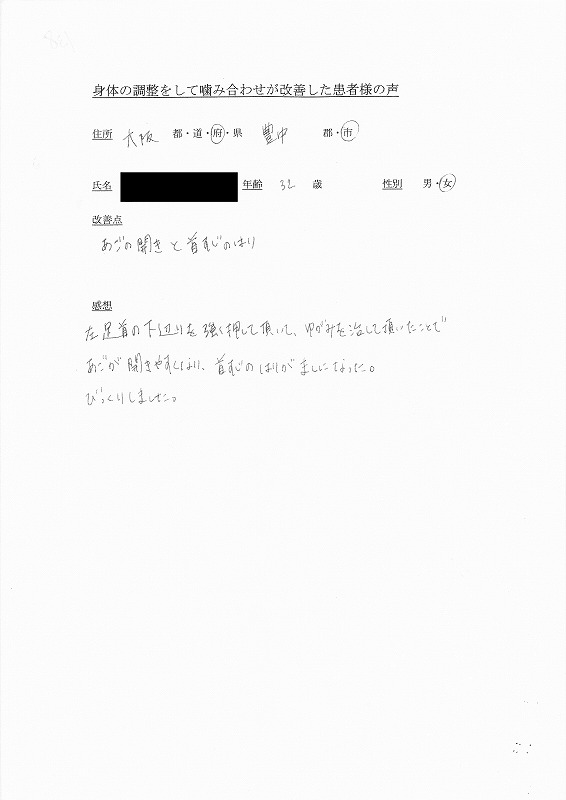 身体の調整をして噛み合わせが改善した患者様の声
住所 大阪 都・道・府・県 豊中 郡・市
氏名 年齢 32 歳 性別 男・女
改善点
あごの開きと首すじのはり
感想
左足首の下辺りを強く押して頂いて、ゆがみを治して頂いたことで
あごが開きやすくなり、首すじのはりがましになった。
びっくりしました。